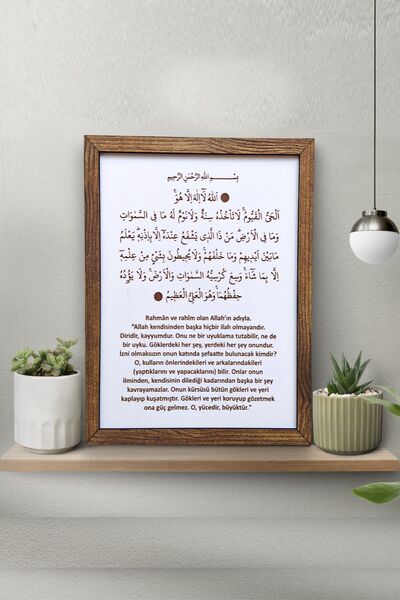 بِسْمِ اللّٰهِ الرَّحْمٰنِ الرَّحِيمِ
اَللّٰهُ لَٓا اِلٰهَ اِلَّا هُوَۚ
اَلْحَيُّ الْقَيُّومُۚ لَا تَأْخُذُهُ سِنَةٌ وَلَا نَوْمٌۜ لَهُ مَا فِي السَّمٰوَاتِ
وَمَا فِي الْاَرْضِۜ مَنْ ذَا الَّذٖي يَشْفَعُ عِنْدَهُٓ اِلَّا بِاِذْنِهٖۜ يَعْلَمُ
مَا بَيْنَ اَيْدٖيهِمْ وَمَا خَلْفَهُمْۚ وَلَا يُحٖيطُونَ بِشَيْءٍ مِنْ عِلْمِهٖٓ
اِلَّا بِمَا شَٓاءَۚ وَسِعَ كُرْسِيُّهُ السَّمٰوَاتِ وَالْاَرْضَۚ وَلَا يَؤُ۫دُهُ
حِفْظُهُمَاۚ وَهُوَ الْعَلِيُّ الْعَظٖيمُ
Rahmân ve rahîm olan Allah'ın adıyla.
"Allah kendisinden başka hiçbir ilah olmayandır.
Diridir, kayyumdur. Onu ne bir uyuklama tutabilir, ne de
bir uyku. Göklerdeki her şey, yerdeki her şey onundur.
İzni olmaksızın onun katında şefaatte bulunacak kimdir?
O, kulların önlerindekileri ve arkalarındakileri
(yaptıklarını ve yapacaklarını) bilir. Onlar onun
ilminden, kendisinin dilediği kadarından başka bir şey
kavrayamazlar. Onun kürsüsü bütün gökleri ve yeri
kaplayıp kuşatmıştır. Gökleri ve yeri koruyup gözetmek
ona güç gelmez. O, yücedir, büyüktür."